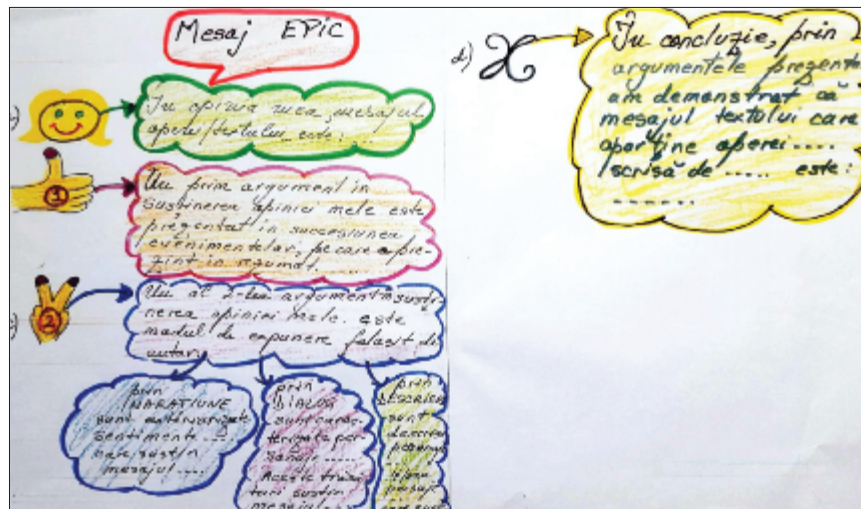 Mesaj EPIC
În opinia mea, mesajul
operei/textului este: ...
1
Un prim argument în
susținerea opiniei mele este
prezentat în succesiunea
evenimentelor, pe care o pre-
zint în rezumat. ....
2
Un al 2-lea argument în susți-
nerea opiniei mele este
modul de expunere folosit de
autor:
prin
NARAȚIUNE
sunt
sentimente ....
care susțin
mesajul ....
prin
DIALOG
sunt carac-
terizate per-
sonaje .....
Aceste trăsă-
turi susțin
mesajul
prin
DESCRIERE
sunt
d)
În concluzie, prin
argumentele prezenta
am demonstrat că
mesajul textului care
aparține operei ....
scrisă de ..... este:
.......